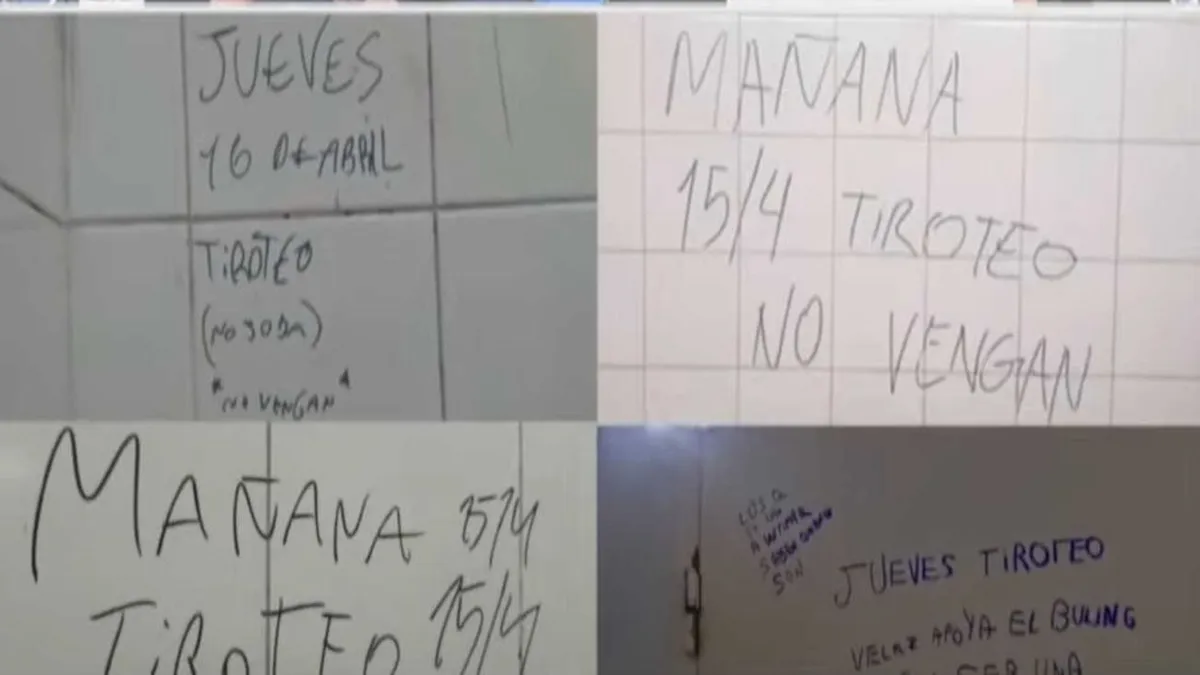 JUEVES
16 DE ABRIL
TIROTEO
(NO JODA)
"NO VENGAN"
MAÑANA
15/4 TIROTEO
NO VENGAN
MAÑANA 15/4
TIROTEO 15/4
JUEVES TIROTEO
APOYA EL BULING
SER UNA